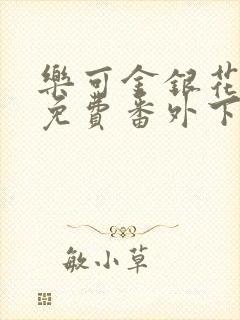 樂可金銀花
免費番外下
敏小草